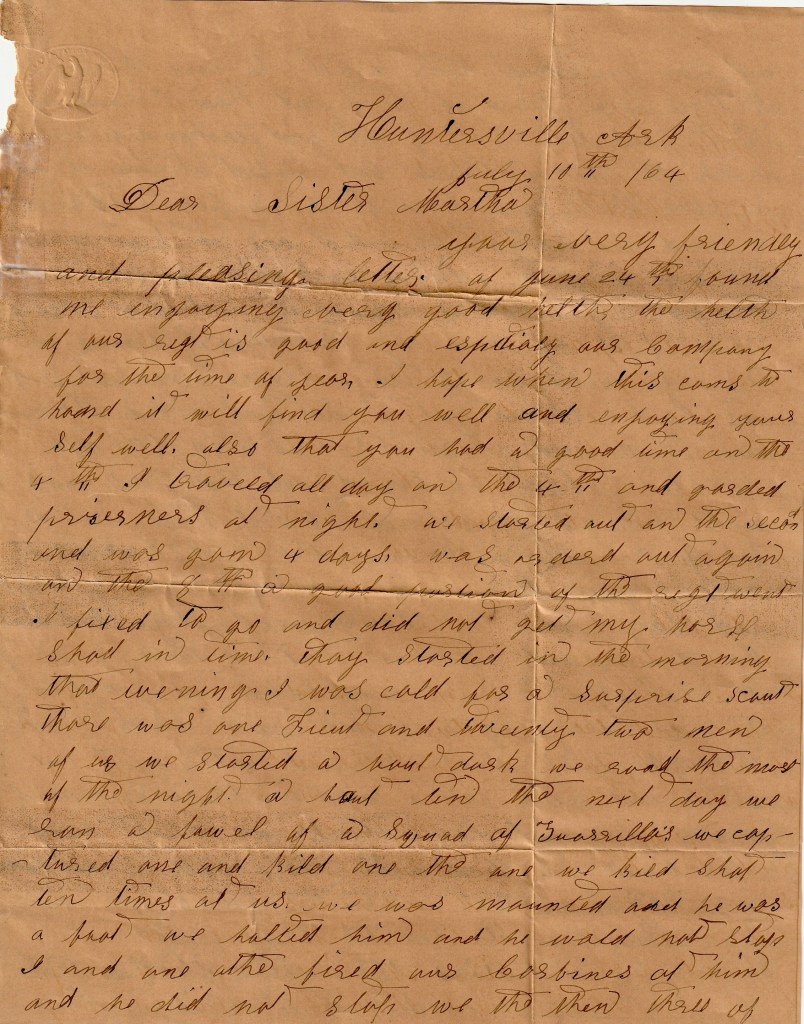 Huntersville Ark
July 10th /64
Dear Sister Martha
your very friendey
and pleasing letter of June 24th found
me enjoying very good helth, the helth
of our regt is good and espdialy our Company
for the time of year, I hope when this coms to
hand it will find you well and enjoying your
self well. also that you had a good time on the
4th I traveld all day on the 4th and garded
priserners at night. we started out on the secon
and was gorn 4 days. was orderd out again
on the 8th a good portion of the regt went
I fixed to go and did not get my horse
Shod in time. thay started in the morning
that evening I was cald for a Surprise scout
thare was one Lieut and twenty two men
of us we started a bout dark we road the most
of the night. a bout ten the next day we
ran a fowel of a Squad of Guarrilla's we cap-
tured one and kild one the one we kild Shot
ten times at us. we was mounted and he was
a foot we halted him and he wold not stop
I and one othe fired our Corbines at him
and he did not stop we the then three of